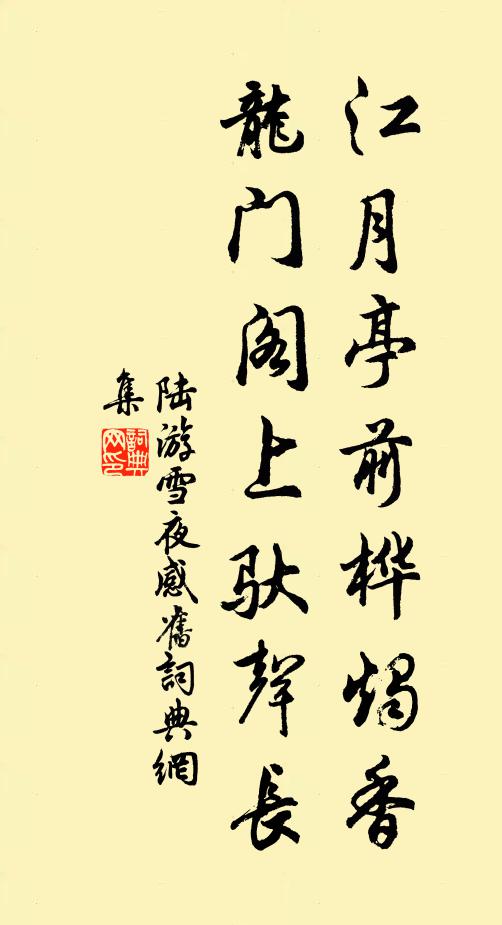 江月亭前桦烛香
龍门阁上驮聲長
陆游雪夜感舊詞典網
集
詞典
网印